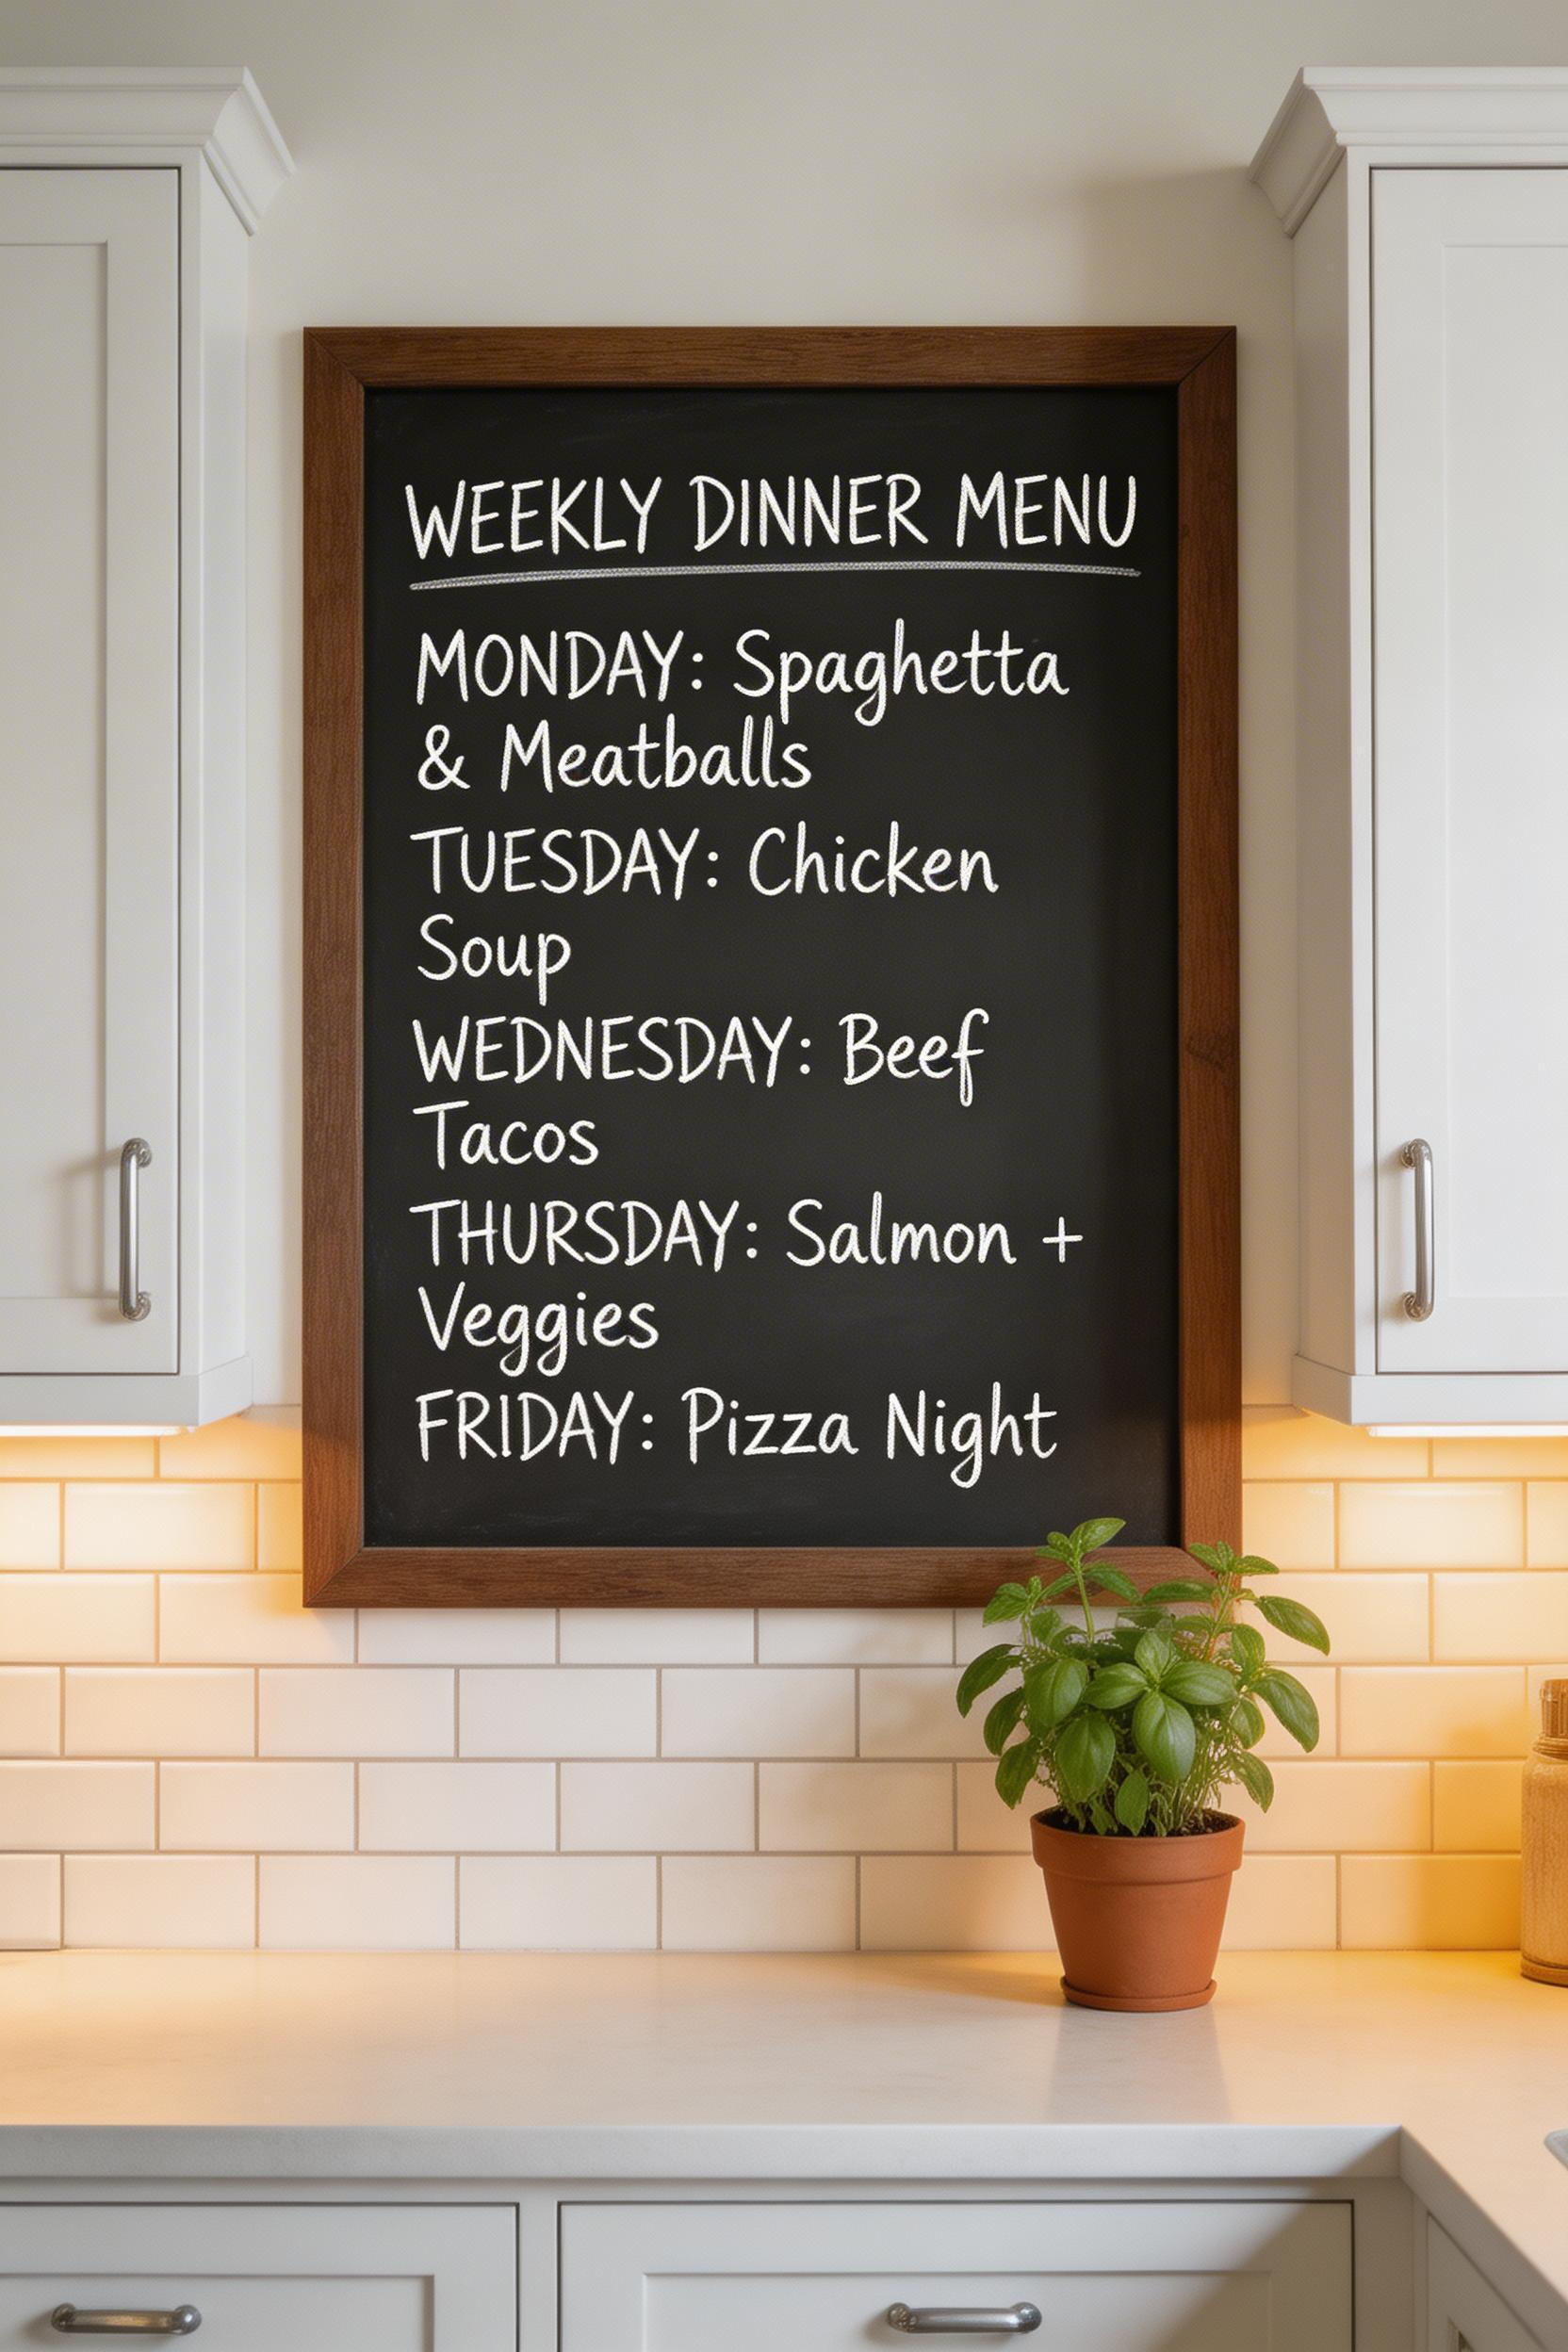 WEEKLY DINNER MENU
MONDAY: Spaghetta
& Meatballs
TUESDAY: Chicken
Soup
WEDNESDAY: Beef
Tacos
THURSDAY: Salmon +
Veggies
FRIDAY: Pizza Night